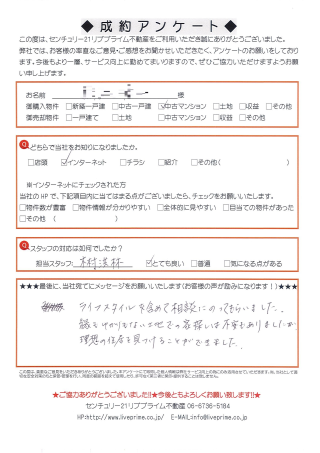 ◆ 成約アンケート ◆
この度は、センチュリー21リブプライム不動産をご利用いただき誠にありがとうございました。
弊社では、お客様の率直なご意見・ご感想をお聞かせいただきたく、アンケートのお願いをしており
ます。今後もより一層、サービス向上に勤めてまいりますので、ぜひご協力いただけますようお願
い申し上げます。
お名前 様
御購入物件 □新築一戸建 □中古一戸建 ☑中古マンション □土地 □収益 □その他
御売却物件 □一戸建て □土地 □中古マンション □収益 □その他
Q どちらで当社をお知りになりましたか。
□店頭 ☑インターネット □チラシ □紹介 □その他( )
※インターネットにチェックされた方
当社のHPで、下記項目内に当てはまる点がございましたら、チェックをお願いいたします。
□物件数が豊富 □物件情報が分かりやすい □全体的に見やすい □目当ての物件があった
□その他 ( )
Q スタッフの対応は如何でしたか?
担当スタッフ: ☑とても良い □普通 □気になる点がある
★★★最後に、当社死てにメッセージをお願いいたします(お客様の声が励みになります!)★★★
ライフスタイルを含めて相談にのってもらいました。
縁もゆかりもない土地での家探しは不安もありましたが
理想の住居を見つけることができました。
★ご協力ありがとうございました!!★今後ともよろしくお願い致します!!★
センチュリー21リブプライム不動産 06-6736-5184
HP:http://www.liveprime.co.jp/ E-MAIL:info@liveprime.co.jp